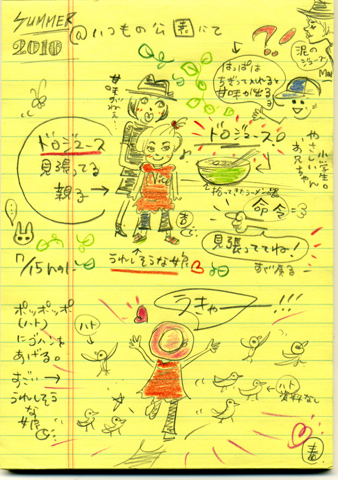 SUMMER
2010
@いつもの公園にて
甘味がねぇ〜
はっぱは
ちぎって入れると
甘味が出る
?!
泥の
ジュース
小学生。
やさしい
お兄ちゃん
ドロジュース
見張ってる
親子→
ドロジュース。
拾ってきたラーメン鉢
命令
見張っててね!
すぐ戻る
7/15(木)
うれしそうな娘
うきゃー!!!
ポッポッポ
(ハト)
にゴハンを
あげる。
すごーい→
うれしそう
な娘
ハト
ハト
資料なし